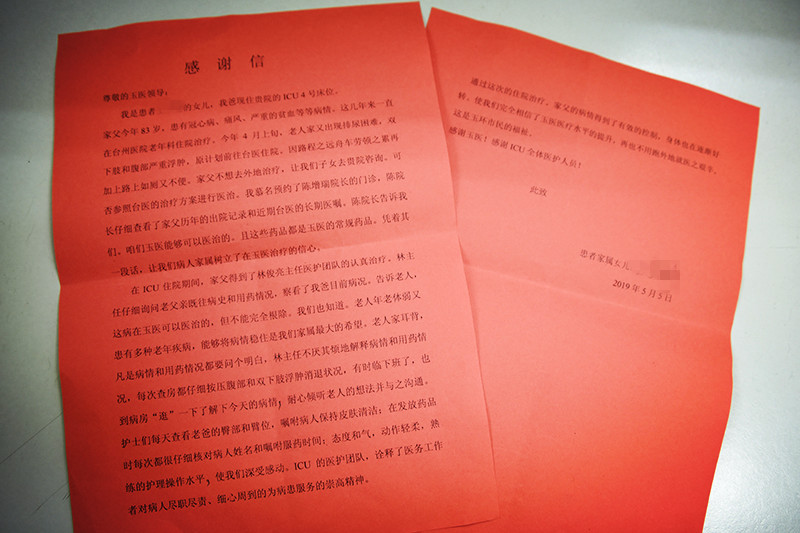 感谢信
尊敬的玉医领导：
我是患者 的女儿，我爸现住贵院的 ICU 4 号床位。
家父今年 83 岁，患有冠心病、痛风、严重的贫血等等病情。这几年来一直
在台州医院老年科住院治疗。今年 4 月上旬，老人家又出现排尿困难，双
下肢和腹部严重浮肿，原计划前往台医住院，因路程之远舟车劳顿之累再
加上路上如厕又不便。家父不想去外地治疗，让我们子女去贵院咨询，可
否参照台医的治疗方案进行医治。我慕名预约了陈增瑞院长的门诊，陈院
长仔细查看了家父历年的出院记录和近期台医的长期医嘱。陈院长告诉我
们，咱们玉医能够可以医治的。且这些药品都是玉医的常规药品。凭着其
一段话，让我们病人家属树立了在玉医治疗的信心。
在 ICU 住院期间，家父得到了林俊亮主任医护团队的认真治疗。林主
任仔细询问老父亲既往病史和用药情况，察看了我爸目前病况。告诉老人，
这病在玉医可以医治的，但不能完全根除。我们也知道。老人年老体弱又
患有多种老年疾病，能够将病情稳住是我们家属最大的希望。老人家耳背，
凡是病情和用药情况都要问个明白，林主任不厌其烦地解释病情和用药情
况，每次查房都仔细按压腹部和双下肢浮肿消退状况，有时临下班了，也
到病房“逛”一下了解下今天的病情；耐心倾听老人的想法并与之沟通。
护士们每天查看老爸的臀部和臂位，嘱咐病人保持皮肤清洁；在发放药品
时每次都很仔细核对病人姓名和嘱咐服药时间；态度和气，动作轻柔，熟
练的护理操作水平；使我们深受感动。ICU 的医护团队，诠释了医务工作
者对病人尽职尽责、细心周到的为病患服务的崇高精神。
通过这次的住院治疗，家父的病情得到了有效的控制，身体也在逐渐好
转，使我们完全相信了玉医医疗水平的提升，再也不用跑外地就医之艰辛，
这是玉环市民的福祉。
感谢玉医！感谢 ICU 全体医护人员！
此致
患者家属女儿
2019 年 5 月 5 日